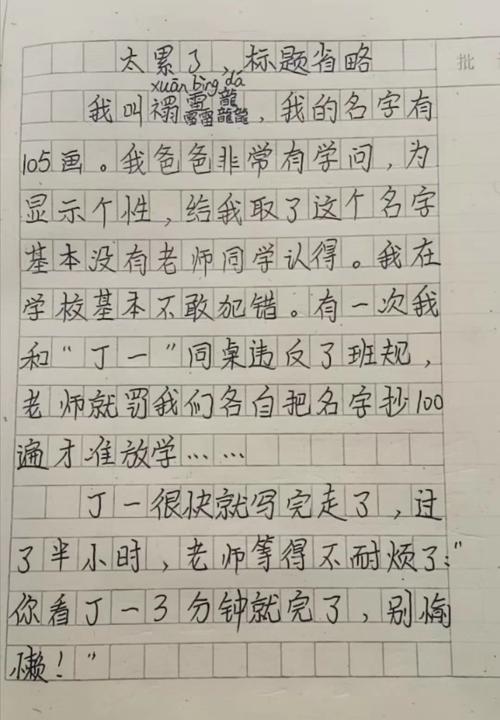 太累了,标题省略
xuān bīng dá
我叫禤靐龘,我的名字有
105画。我爸爸非常有学问,为
显示个性,给我取了这个名字
基本没有老师同学认得。我在
学校基本不敢犯错。有一次我
和“丁一”同桌违反了班规,
老师就罚我们各自把名字抄100
遍才准放学……
丁一很快就写完走了,过
了半小时,老师等得不耐烦了:“
你看丁一3分钟就完了,别偷
懒!”
批